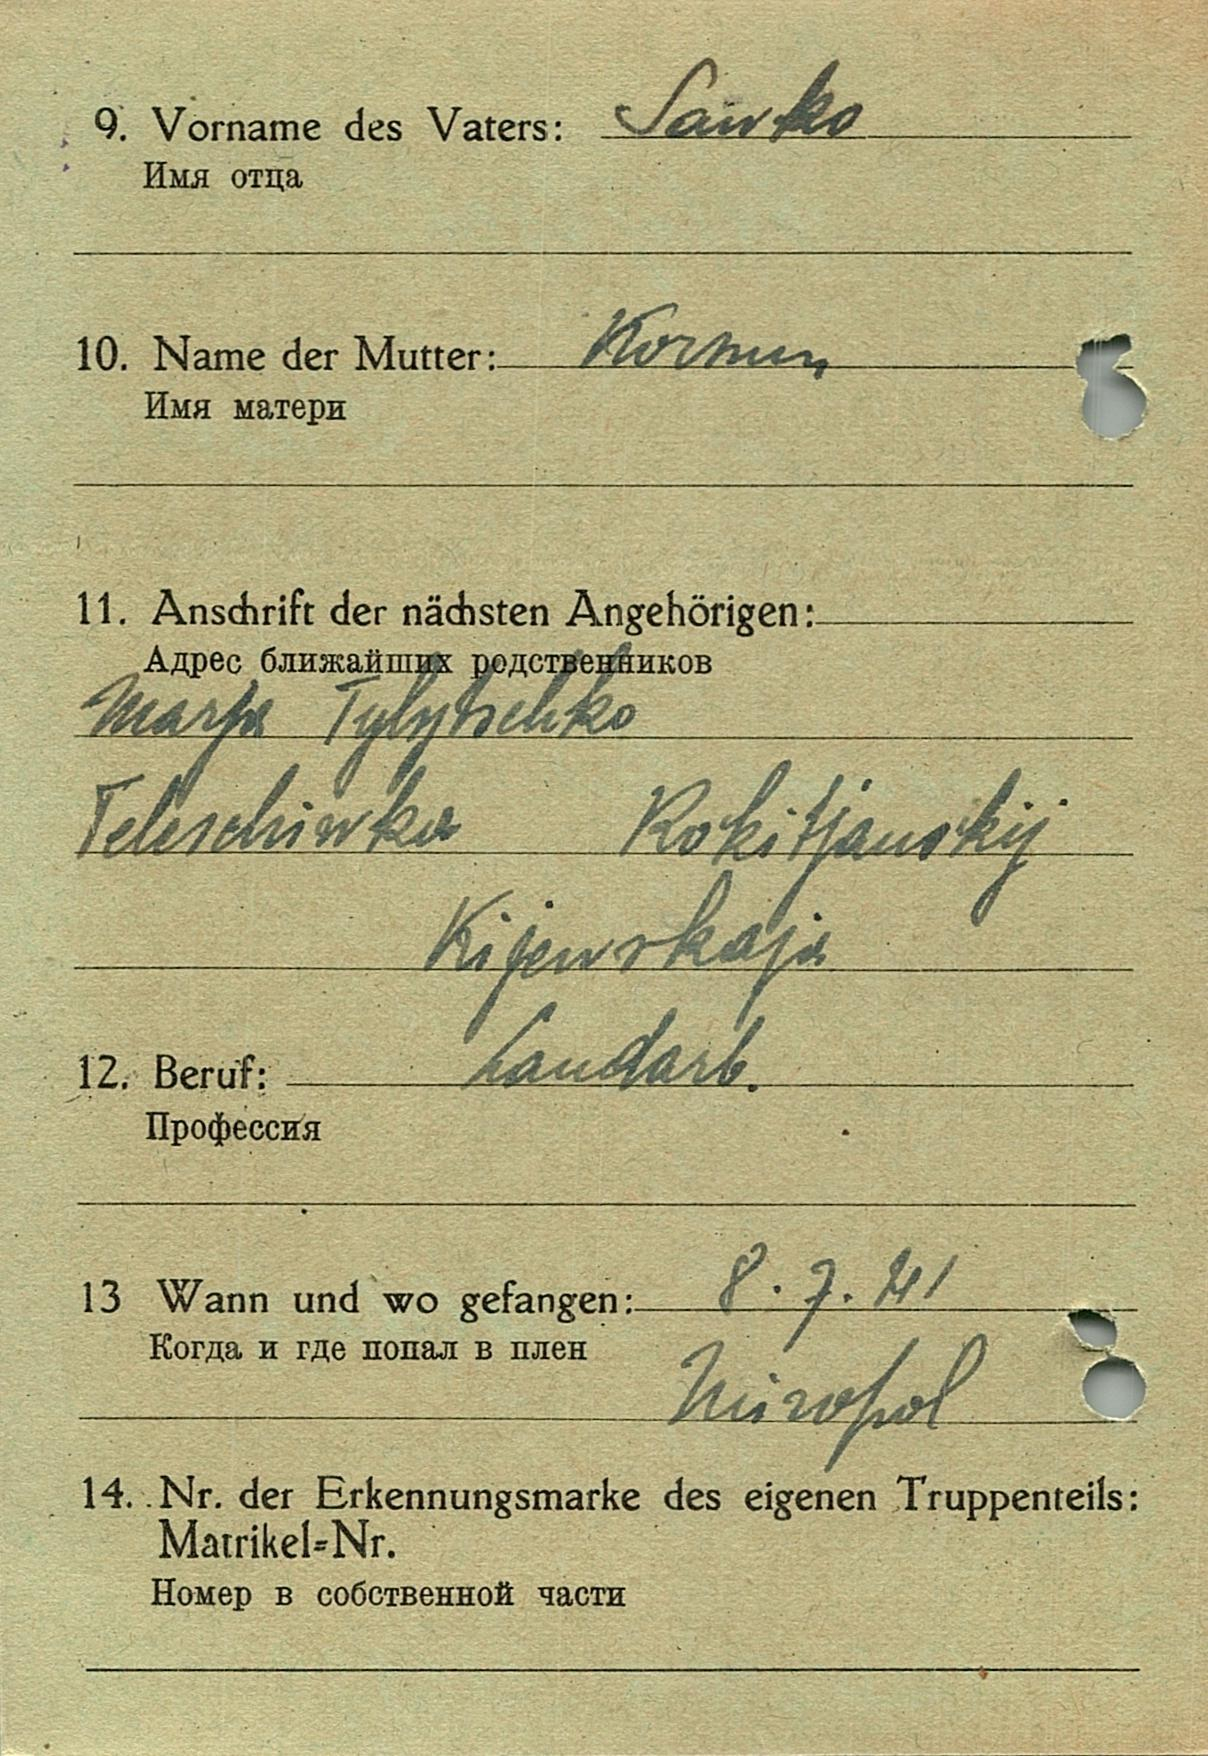 9. Vorname des Vaters: Sawko
Имя отца
10. Name der Mutter: Kormun
Имя матери
11. Anschrift der nächsten Angehörigen:
Адрес ближайших родственников
Marja Tylytschko
Teleschiwka Rokitjanskij
Kijewskaja
12. Beruf: Landarb.
Профессия
13 Wann und wo gefangen: 8.7.41
Когда и где попал в плен
Miropol
14. Nr. der Erkennungsmarke des eigenen Truppenteils:
Matrikel=Nr.
Номер в собственной части